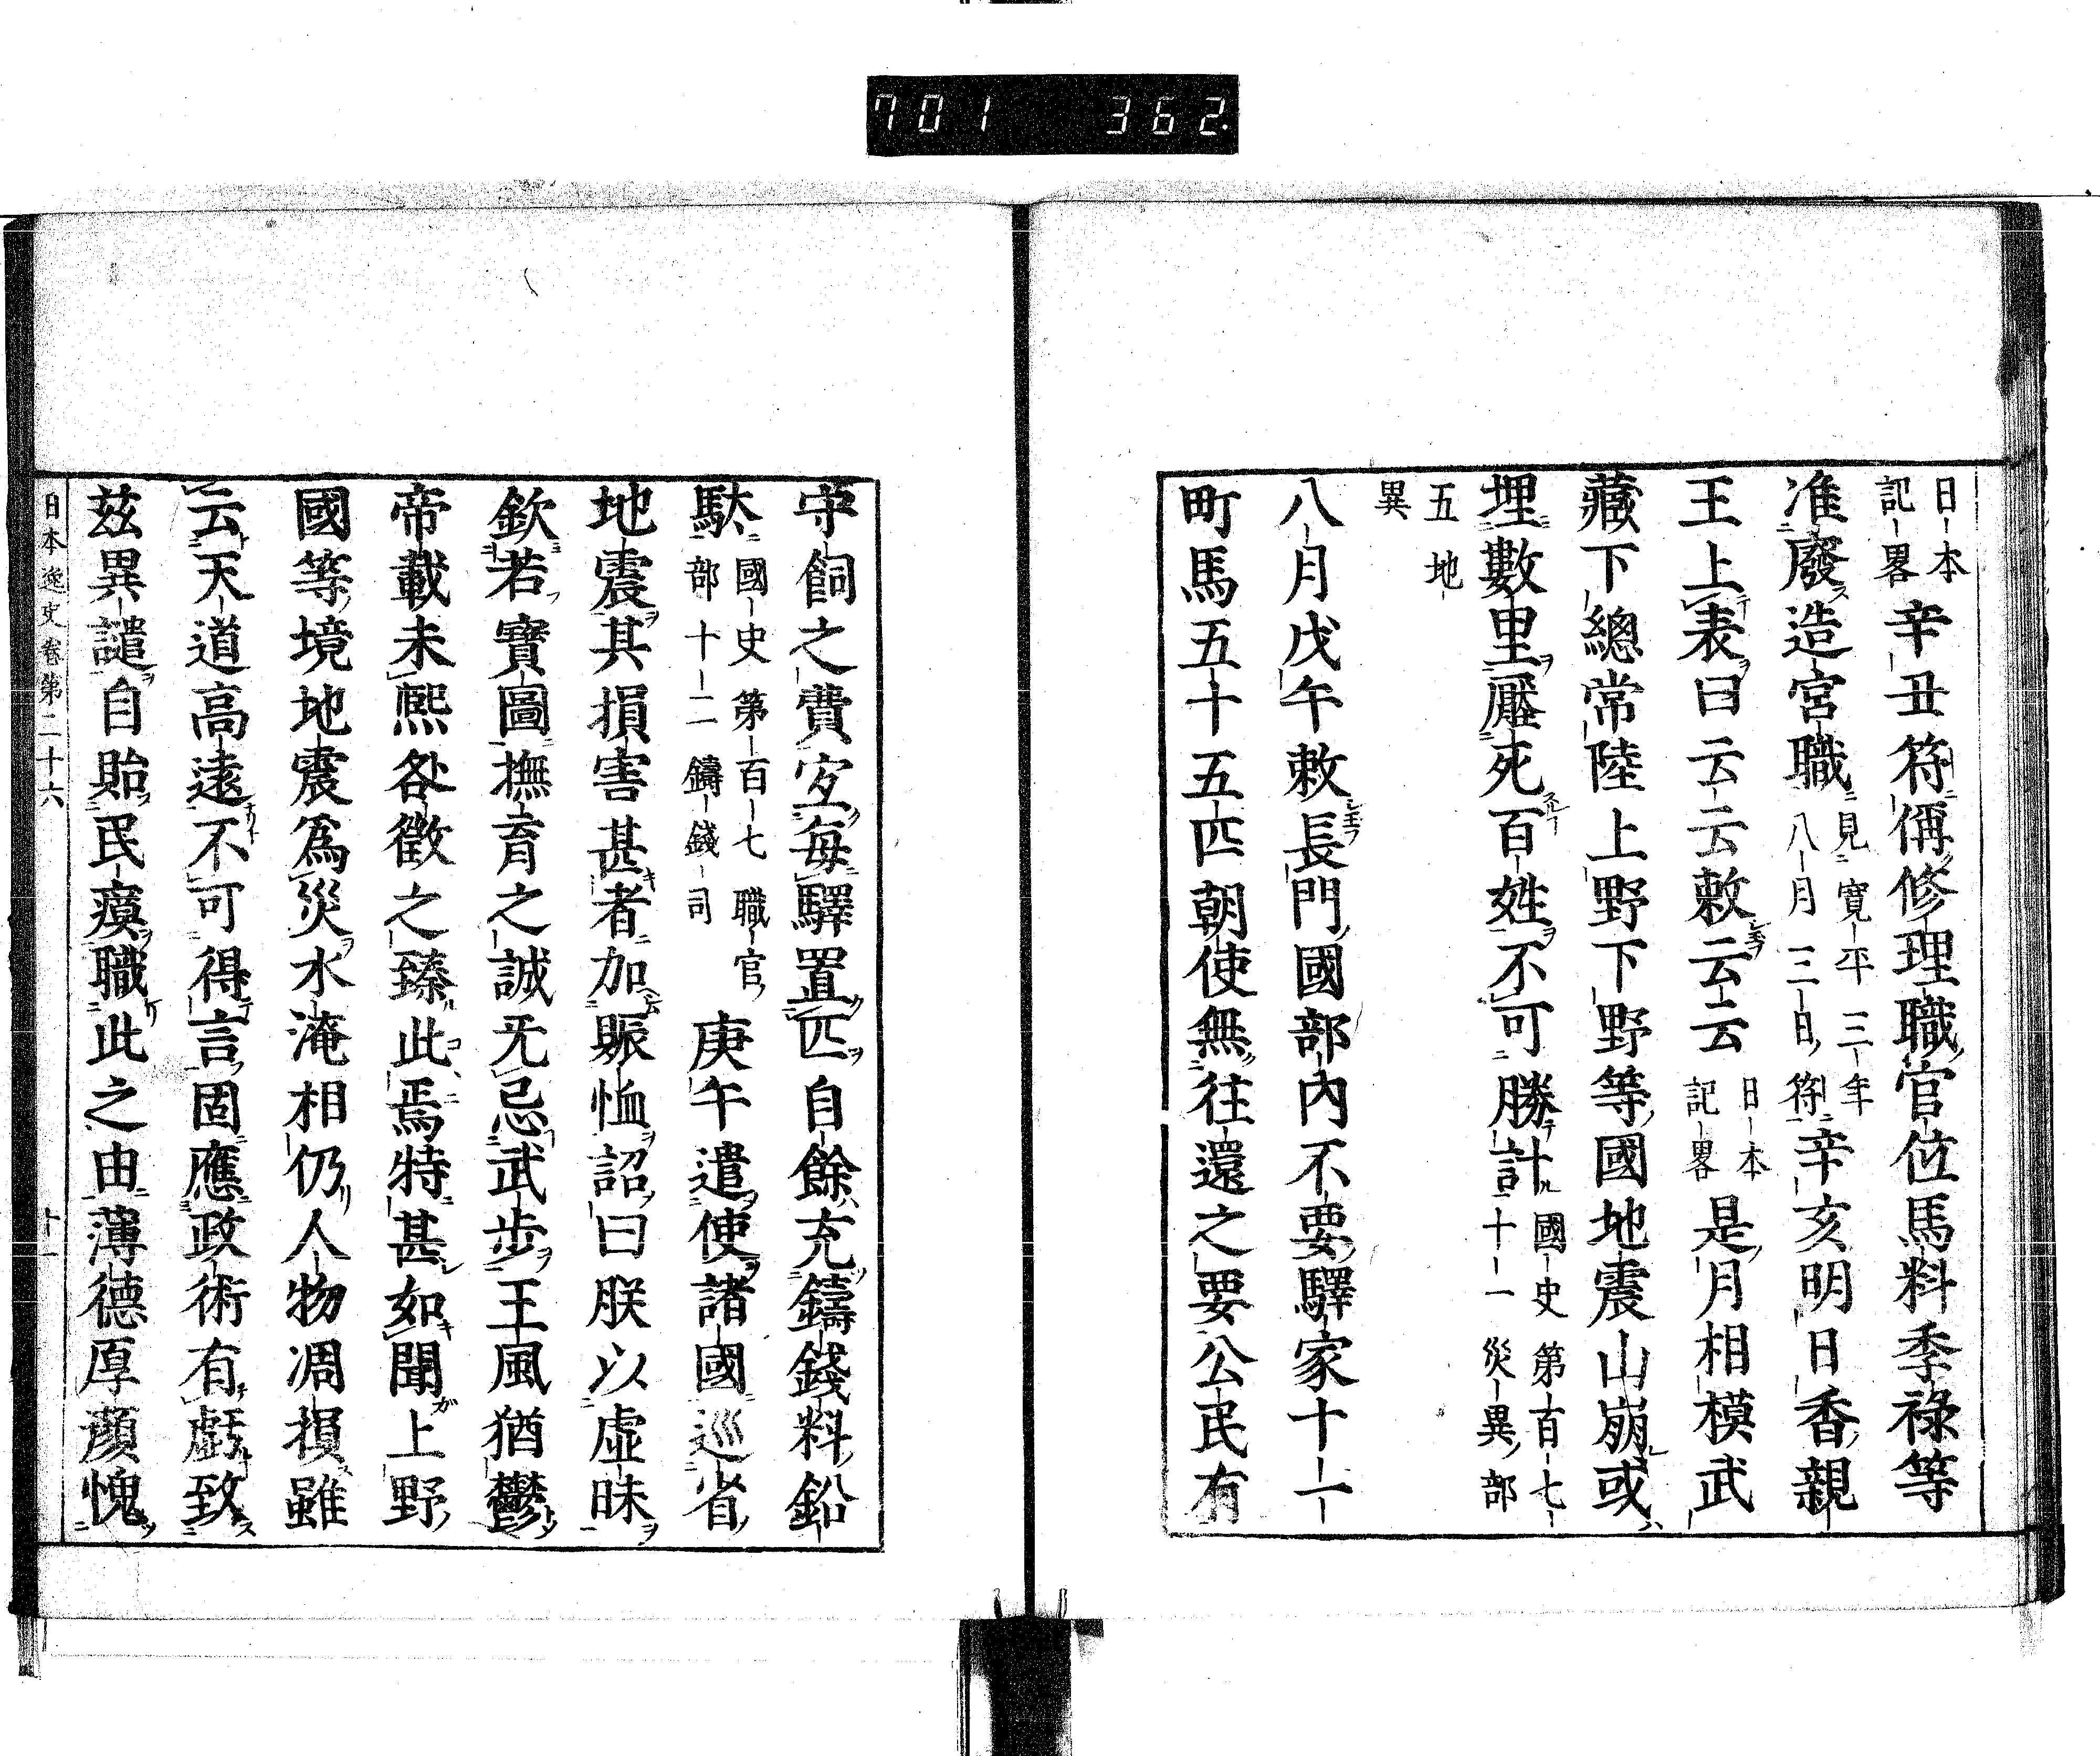 701 362
日本記畧辛丑符偁修理職官位馬料季祿等
准廢造宮職見寛平三年八月三日符辛亥明日香親
王上表曰云云敕云云日本記畧是月相模武
藏下總常陸上野下野等國地震山崩或
埋數里壓死百姓不可勝計國史第百七十一災異部
五地異
八月戊午敕長門國部內不要驛家十一
町馬五十五匹朝使無往還之要公民有
守飼之費宜毎驛置匹自餘充鑄錢料鉛
駄國史第百七職官部十二鑄錢司庚午遣使諸國巡省
地震其損害甚者加賑恤詔曰朕以虛昧
欽若寶圖撫育之誠无忌武步王風猶鬱
帝載未熙咎徵之臻此焉特甚如聞上野
國等境地震爲災水淹相仍人物凋損雖
云天道高遠不可得言固應政術有虧致
茲異譴自貽民瘼職此之由薄德厚顏愧
日本逸史卷第二十六 十一